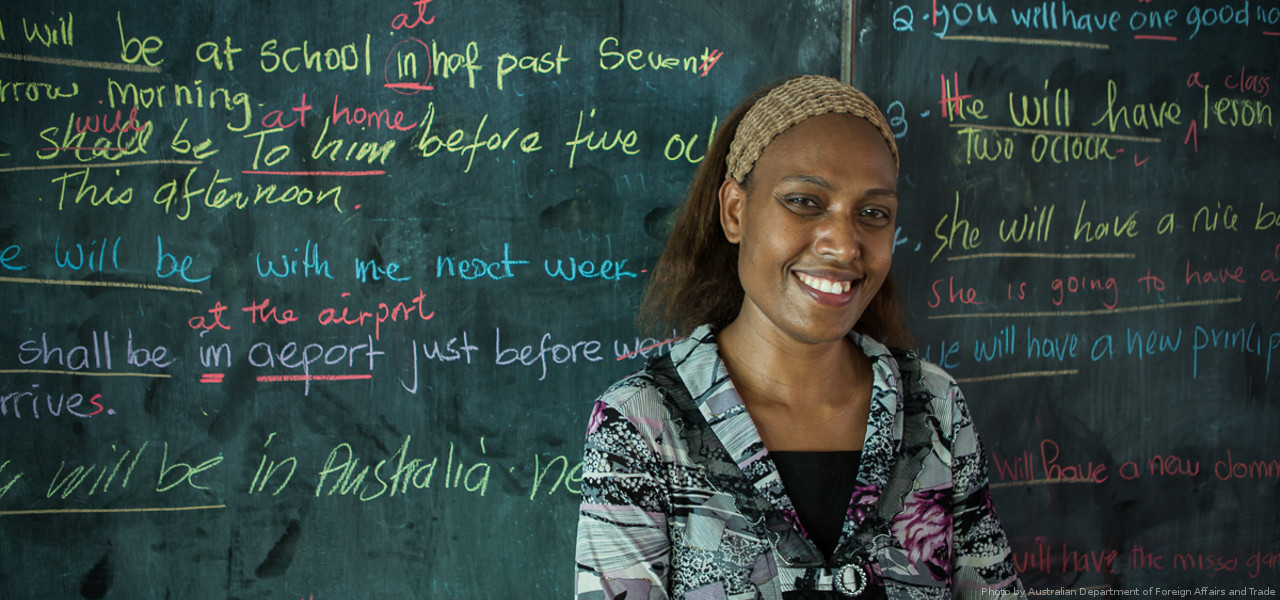 will be at school in haf past Seventy
at
rrow morning.
will
at home
shall be To him before five
This afternoon.
will be with me next week.
at the airport
shall be in aeport just before went
rrives.
will be in Australia
2. you will have one good
a class
3. He will have leson
Two oclock.
she will have a nice
She is going to have a
we will have a new princip
will have a new
will have the
Photo by Australian Department of Foreign Affairs and Trade